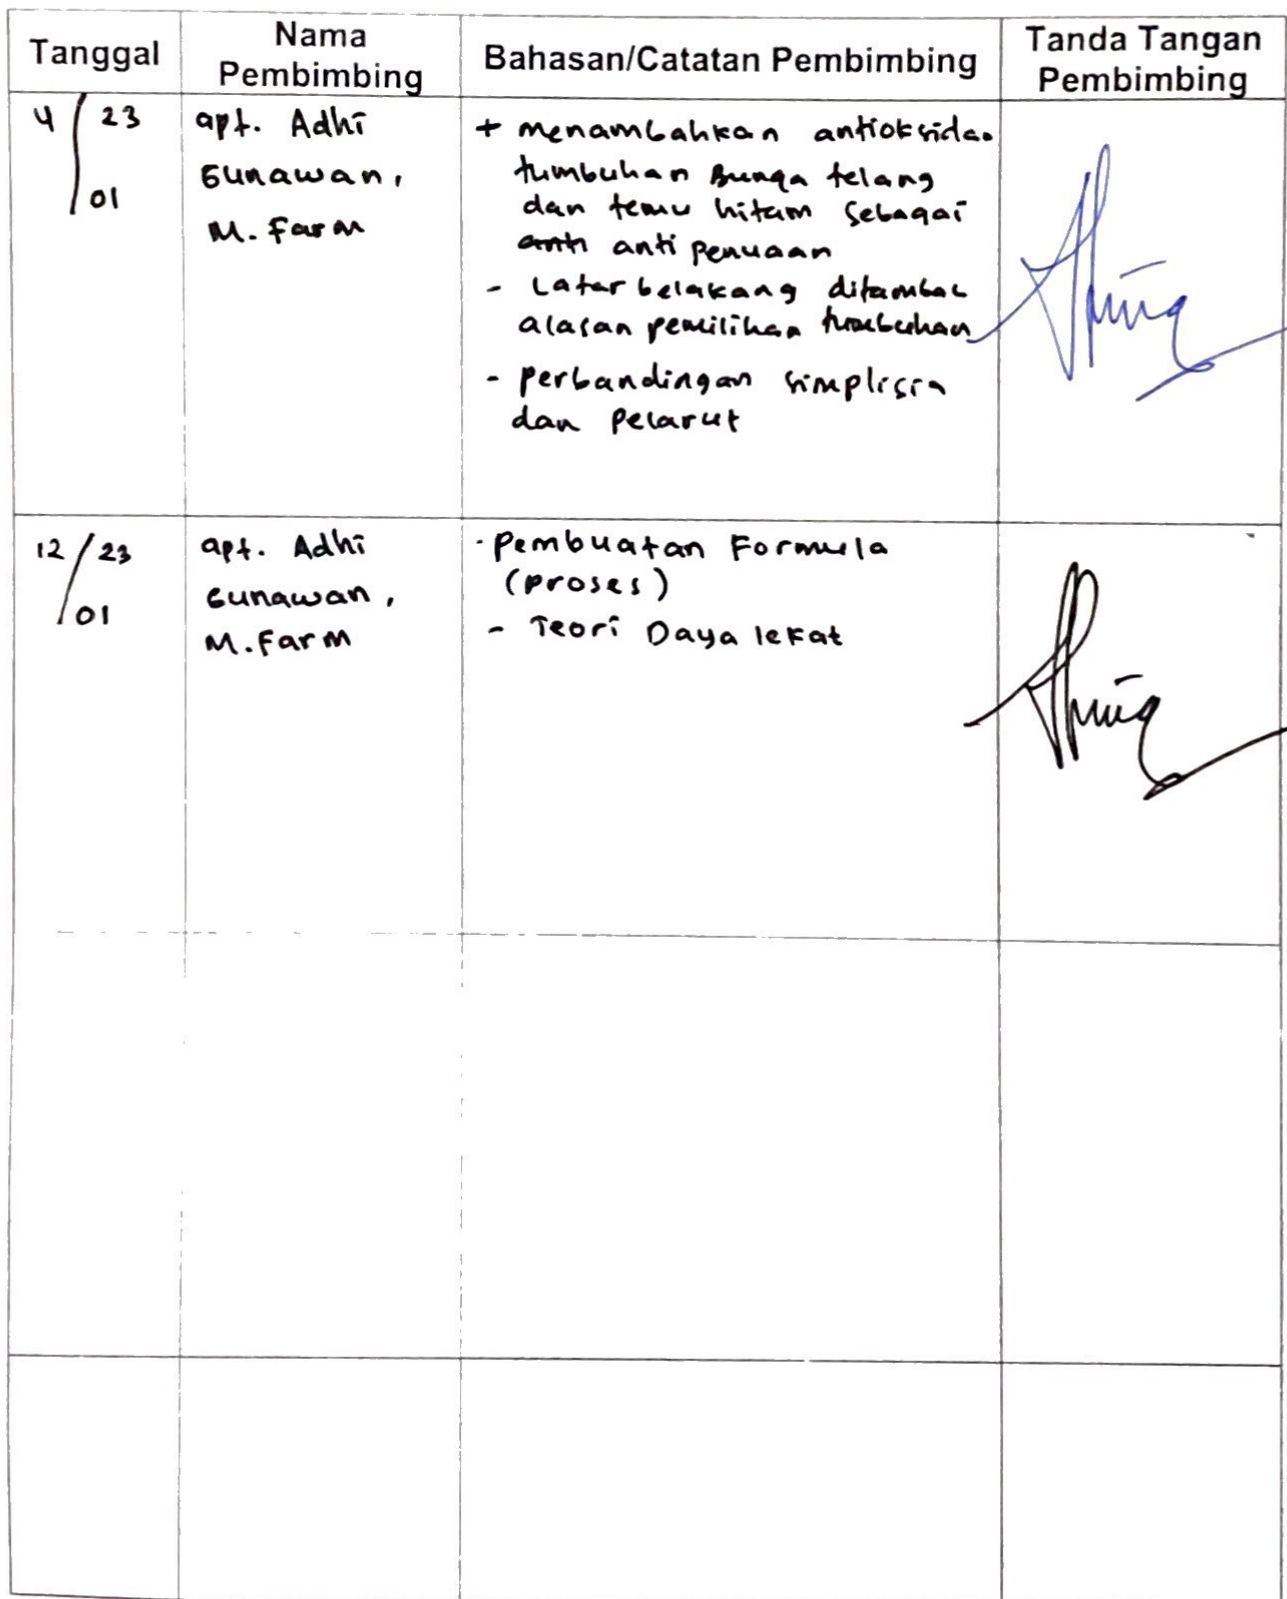 Tanggal
Nama
Pembimbing
Bahasan/Catatan Pembimbing
Tanda Tangan
Pembimbing
4 / 23
01
apt. Adhi
Gunawan,
M. Farm
+ menambahkan antioksidan
tumbuhan Bunga telang
dan temu hitam sebagai
anti anti penuaan
- Latar belakang ditambah
alasan pemilihan tumbuhan
- perbandingan simplisia
dan pelarut
12 / 23
01
apt. Adhi
Gunawan,
M. Farm
- Pembuatan Formula
(proses)
- Teori Daya lekat